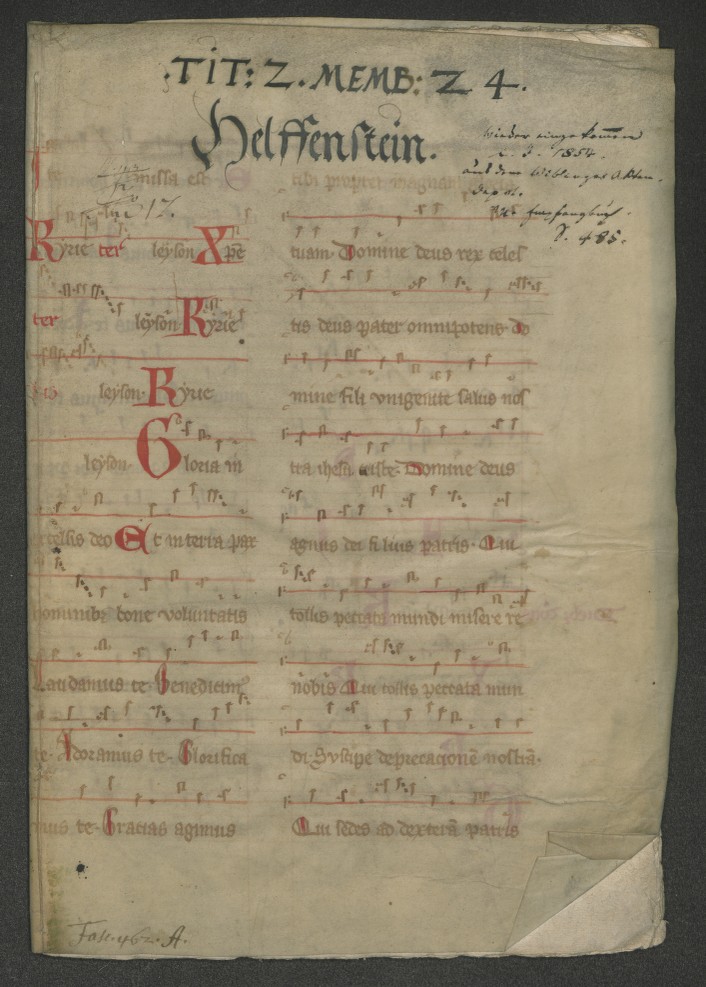 .TIT: Z. MEMB: Z 4.
Helffenstein.
wieder eingekommen
1854.
aus dem Wiblinger Akten-
depot.
S. 485.
te missa est
tibi propter magnam
17.
Kyrie ter leyson Xpe
ter leyson Kyrie
leyson. Kyrie
leyson. Gloria in
excelsis deo Et in terra pax
hominibz bone voluntatis
Laudamus te. Benedicim
te. Adoramus te. Glorifica
mus te. Gracias agimus
tuam. Domine deus rex celes
tis deus pater omnipotens do
mine fili vnigenite salus nos
tra ihesu criste. Domine deus
agnus dei filius patris. Qui
tollis peccata mundi misere re
nobis Qui tollis peccata mun
di. Suscipe deprecacionē nostrā.
Qui sedes ad dexterā patris
Fasc. 462. A.